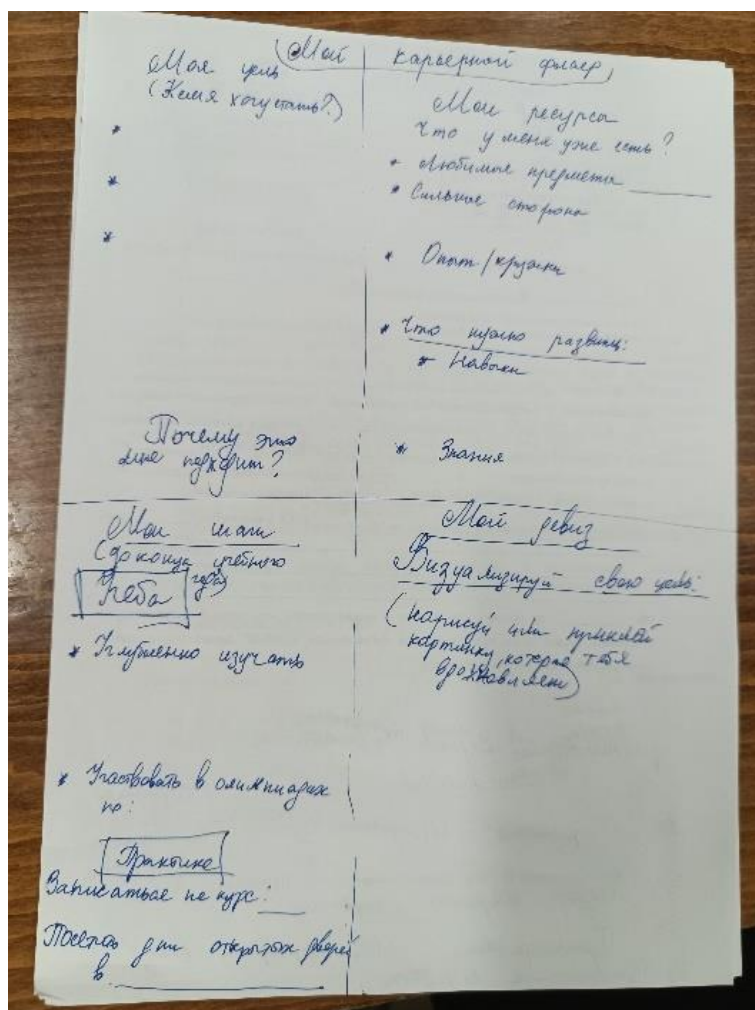 Мой карьерный флаер
Моя цель
(Кем я хочу стать?)
*
*
*
Почему это
мне подходит?
Мои ресурсы
Что у меня уже есть?
* Любимые предметы ______
* Сильные стороны
* Опыт / кружки
* Что нужно развить:
* Навыки
* Знания
Мои шаги
(до конца учебного
года)
Учеба
* Углубленно изучать
* Участвовать в олимпиадах
по:
Практика
Записаться на курс: ___
Посетить дни открытых дверей
в ______________
Мой девиз
Визуализируй свою цель:
(нарисуй или приклей
картинку, которая тебя
вдохновляет)